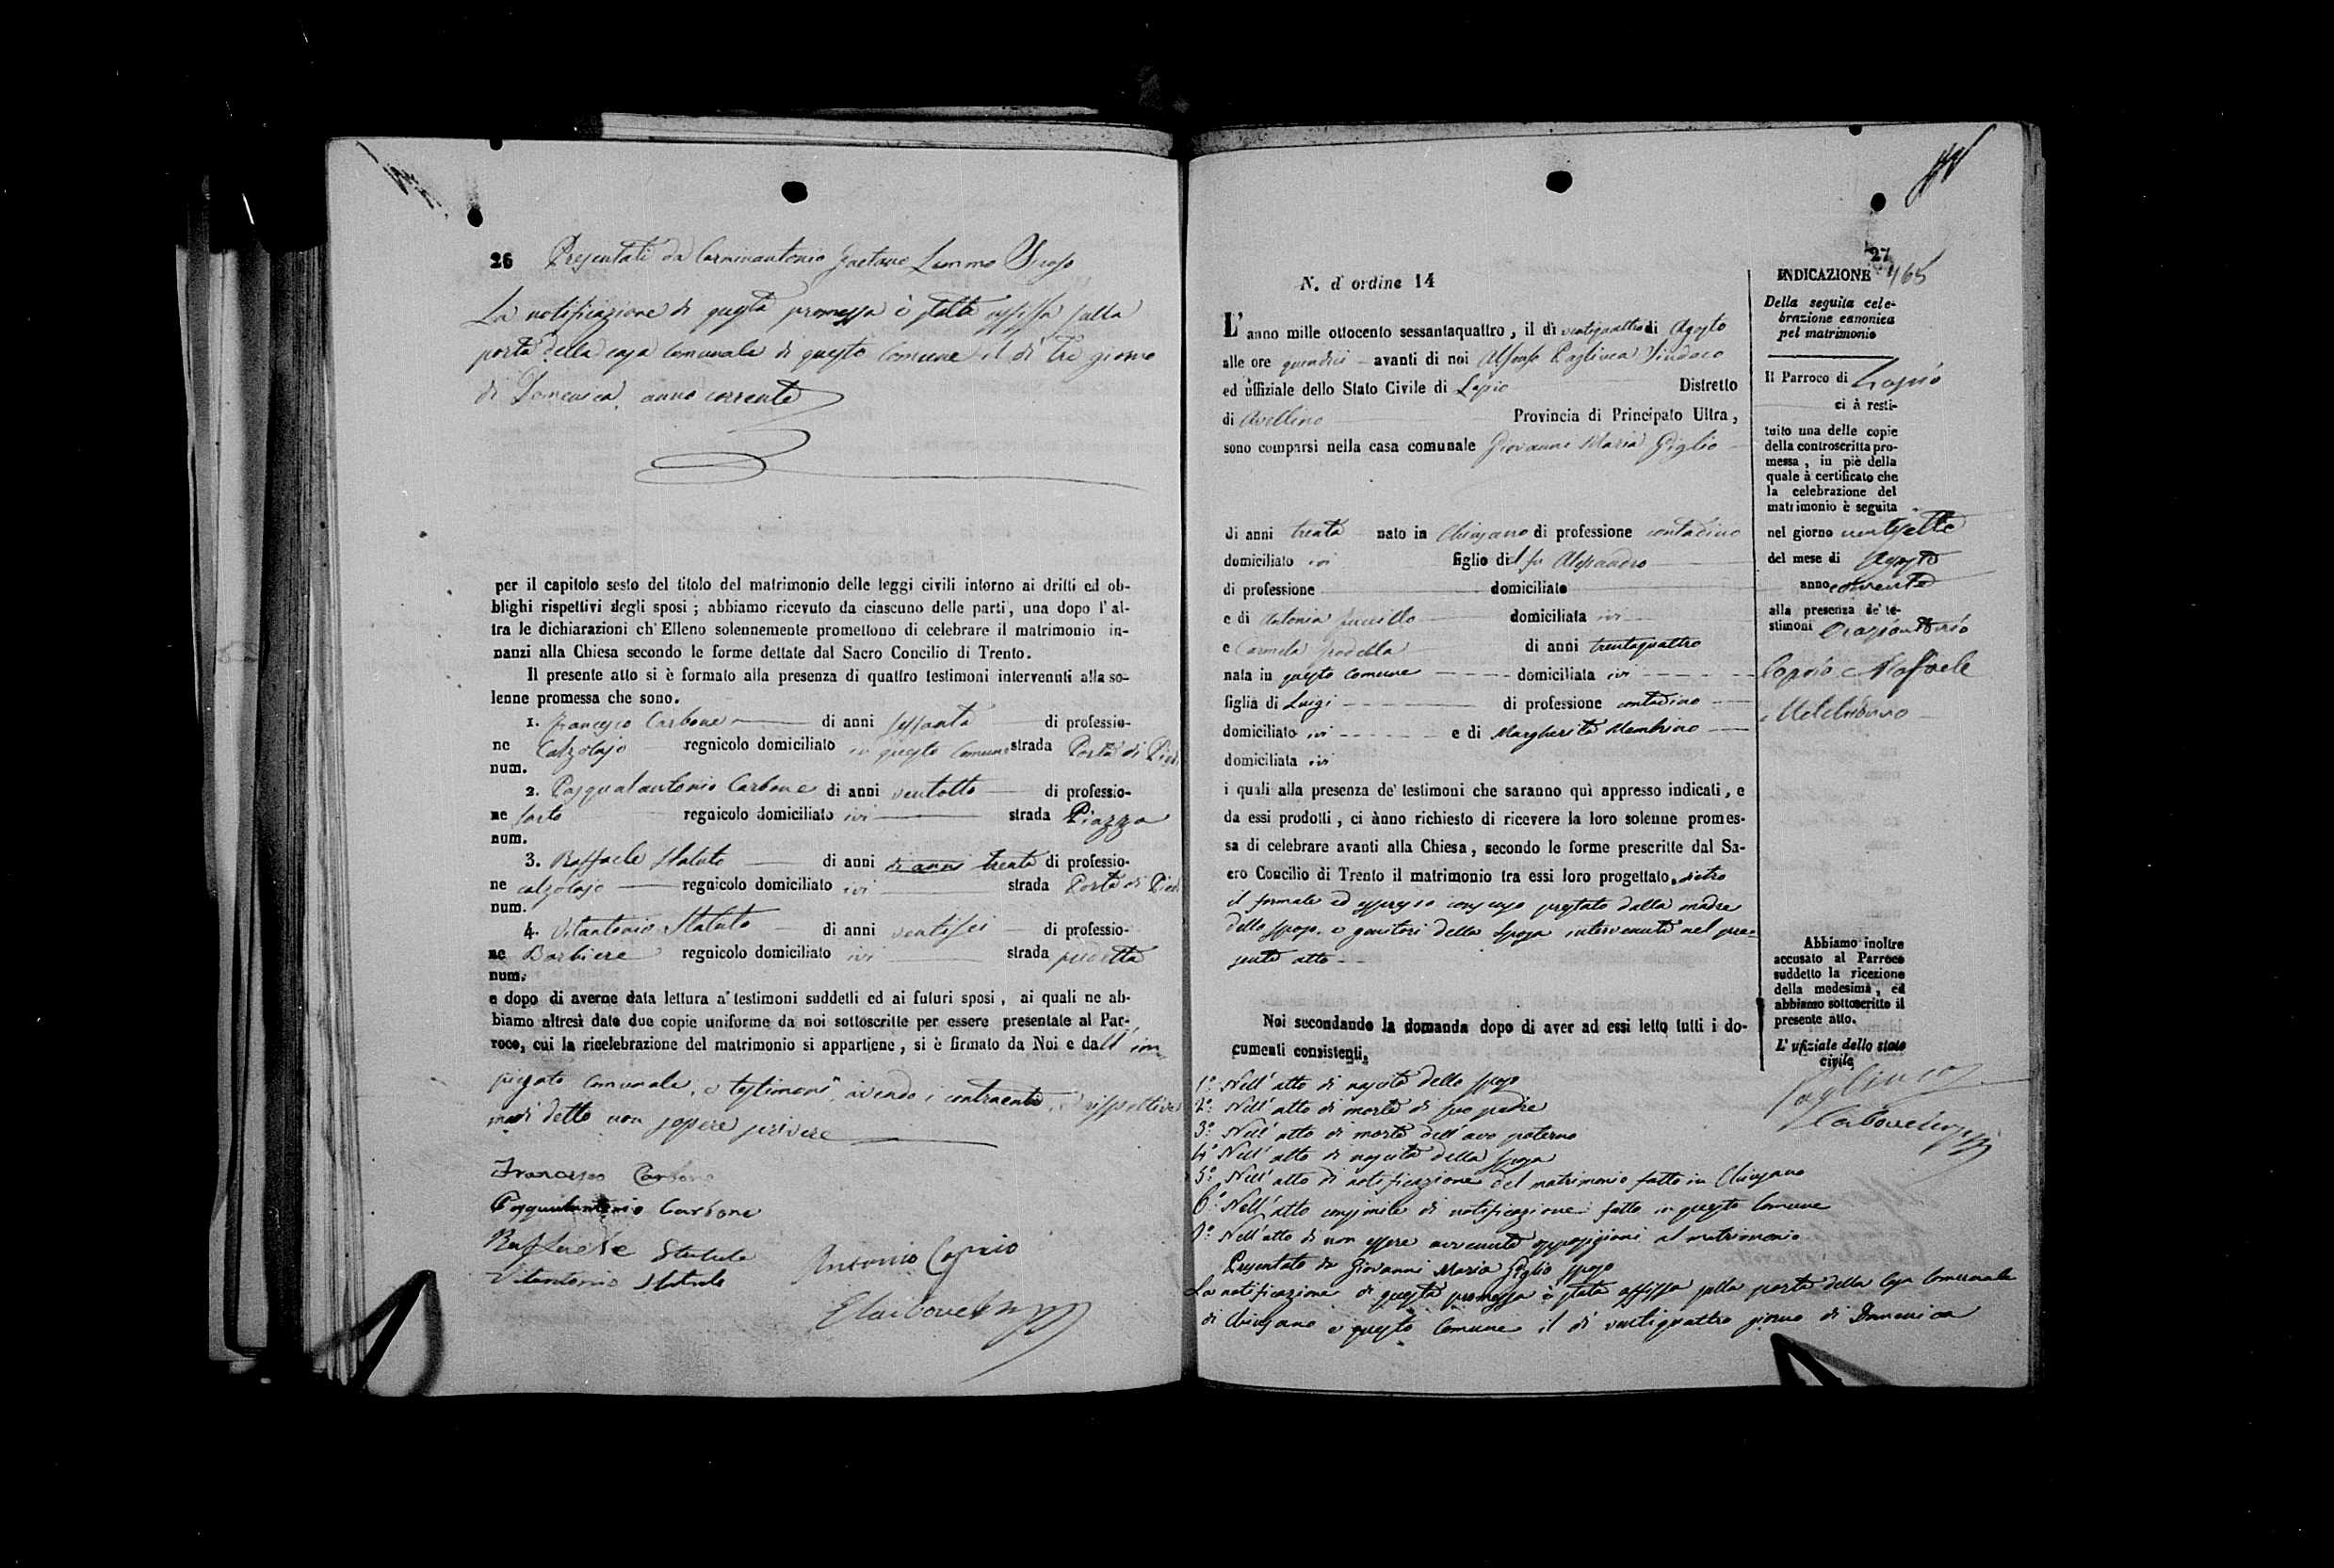 26 Presentati da Carminantonio Gaetano Lammo Sposo
La notificazione di questa promessa è stata affissa sulla
porta della casa comunale di questo Comune il dì tre giorno
di Domenica anno corrente
per il capitolo sesto del titolo del matrimonio delle leggi civili intorno ai dritti ed ob-
blighi rispettivi degli sposi ; abbiamo ricevuto da ciascuno delle parti, una dopo l'al-
tra le dichiarazioni ch'Elleno solennemente promettono di celebrare il matrimonio in-
nanzi alla Chiesa secondo le forme dettate dal Sacro Concilio di Trento.
Il presente atto si è formato alla presenza di quattro testimoni intervenuti alla so-
lenne promessa che sono.
1. Francesco Carbone di anni sessanta di professio-
ne Calzolajo regnicolo domiciliato in questo Comune strada Porta di
num.
2. Pasqualantonio Carbone di anni ventotto di professio-
ne sarto regnicolo domiciliato ivi strada Piazza
num.
3. Raffaele Statuto di anni di anni trenta di professio-
ne calzolajo regnicolo domiciliato ivi strada Porta di
num.
4. Vitantonio Statuto di anni ventisei di professio-
ne Barbiere regnicolo domiciliato ivi strada
num.
e dopo di averne data lettura a' testimoni suddetti ed ai futuri sposi, ai quali ne ab-
biamo altresì date due copie uniforme da noi sottoscritte per essere presentate al Par-
roco, cui la ricelebrazione del matrimonio si appartiene, si è firmato da Noi e dall' im-
piegato comunale, e testimoni, avendo i contraenti, e rispettivi
detto non sapere scrivere
Francesco Carbone
Pasqualantonio Carbone
Raffaele Statuto
Vitantonio Statuto
Antonio Caprio
27
465
N. d'ordine 14
L'anno mille ottocento sessantaquattro, il dì ventiquattro di Agosto
alle ore quindici avanti di noi Alfonso Pagliuca Sindaco
ed uffiziale dello Stato Civile di Lapio Distretto
di Avellino Provincia di Principato Ultra,
sono comparsi nella casa comunale Giovanni Maria Giglio
di anni trenta nato in Chiusano di professione contadino
domiciliato ivi figlio del fu Alessandro
di professione domiciliato
e di Antonia domiciliata ivi
e Carmela di anni trentaquattro
nata in questo Comune domiciliata ivi
figlia di Luigi di professione contadino
domiciliato ivi e di Margherita Membrino
domiciliata ivi
i quali alla presenza de' testimoni che saranno quì appresso indicati, e
da essi prodotti, ci ànno richiesto di ricevere la loro solenne promes-
sa di celebrare avanti alla Chiesa, secondo le forme prescritte dal Sa-
cro Concilio di Trento il matrimonio tra essi loro progettato, dietro
il formale ed espresso consenso prestato dalla madre
dello sposo, e genitori della sposa intervenuti nel pre-
sente atto
Noi secondando la domanda dopo di aver ad essi letto tutti i do-
cumenti consistenti,
1.° Nell'atto di nascita dello sposo
2.° Nell'atto di morte di suo padre
3.° Nell'atto di morte dell'avo paterno
4.° Nell'atto di nascita della sposa
5.° Nell'atto di notificazione del matrimonio fatto in Chiusano
6.° Nell'atto consimile di notificazione fatto in questo Comune
7.° Nell'atto di non essere avvenute opposizioni al matrimonio
Presentato da Giovanni Maria Giglio sposo
La notificazione di questa promessa è stata affissa sulla porta della Casa Comunale
di Chiusano e questo Comune il dì ventiquattro giorno di Domenica
INDICAZIONE
Della seguita cele-
brazione canonica
pel matrimonio
Il Parroco di Lapio
ci à resti-
tuito una delle copie
della controscritta pro-
messa, in piè della
quale à certificato che
la celebrazione del
matrimonio è seguita
nel giorno ventisette
del mese di Agosto
anno corrente
alla presenza de' te-
stimoni
Caprio e Raffaele
Abbiamo inoltre
accusato al Parroco
suddetto la ricezione
della medesima, ed
abbiamo sottoscritto il
presente atto.
L'ufiziale dello stato
civile
Pagliuca